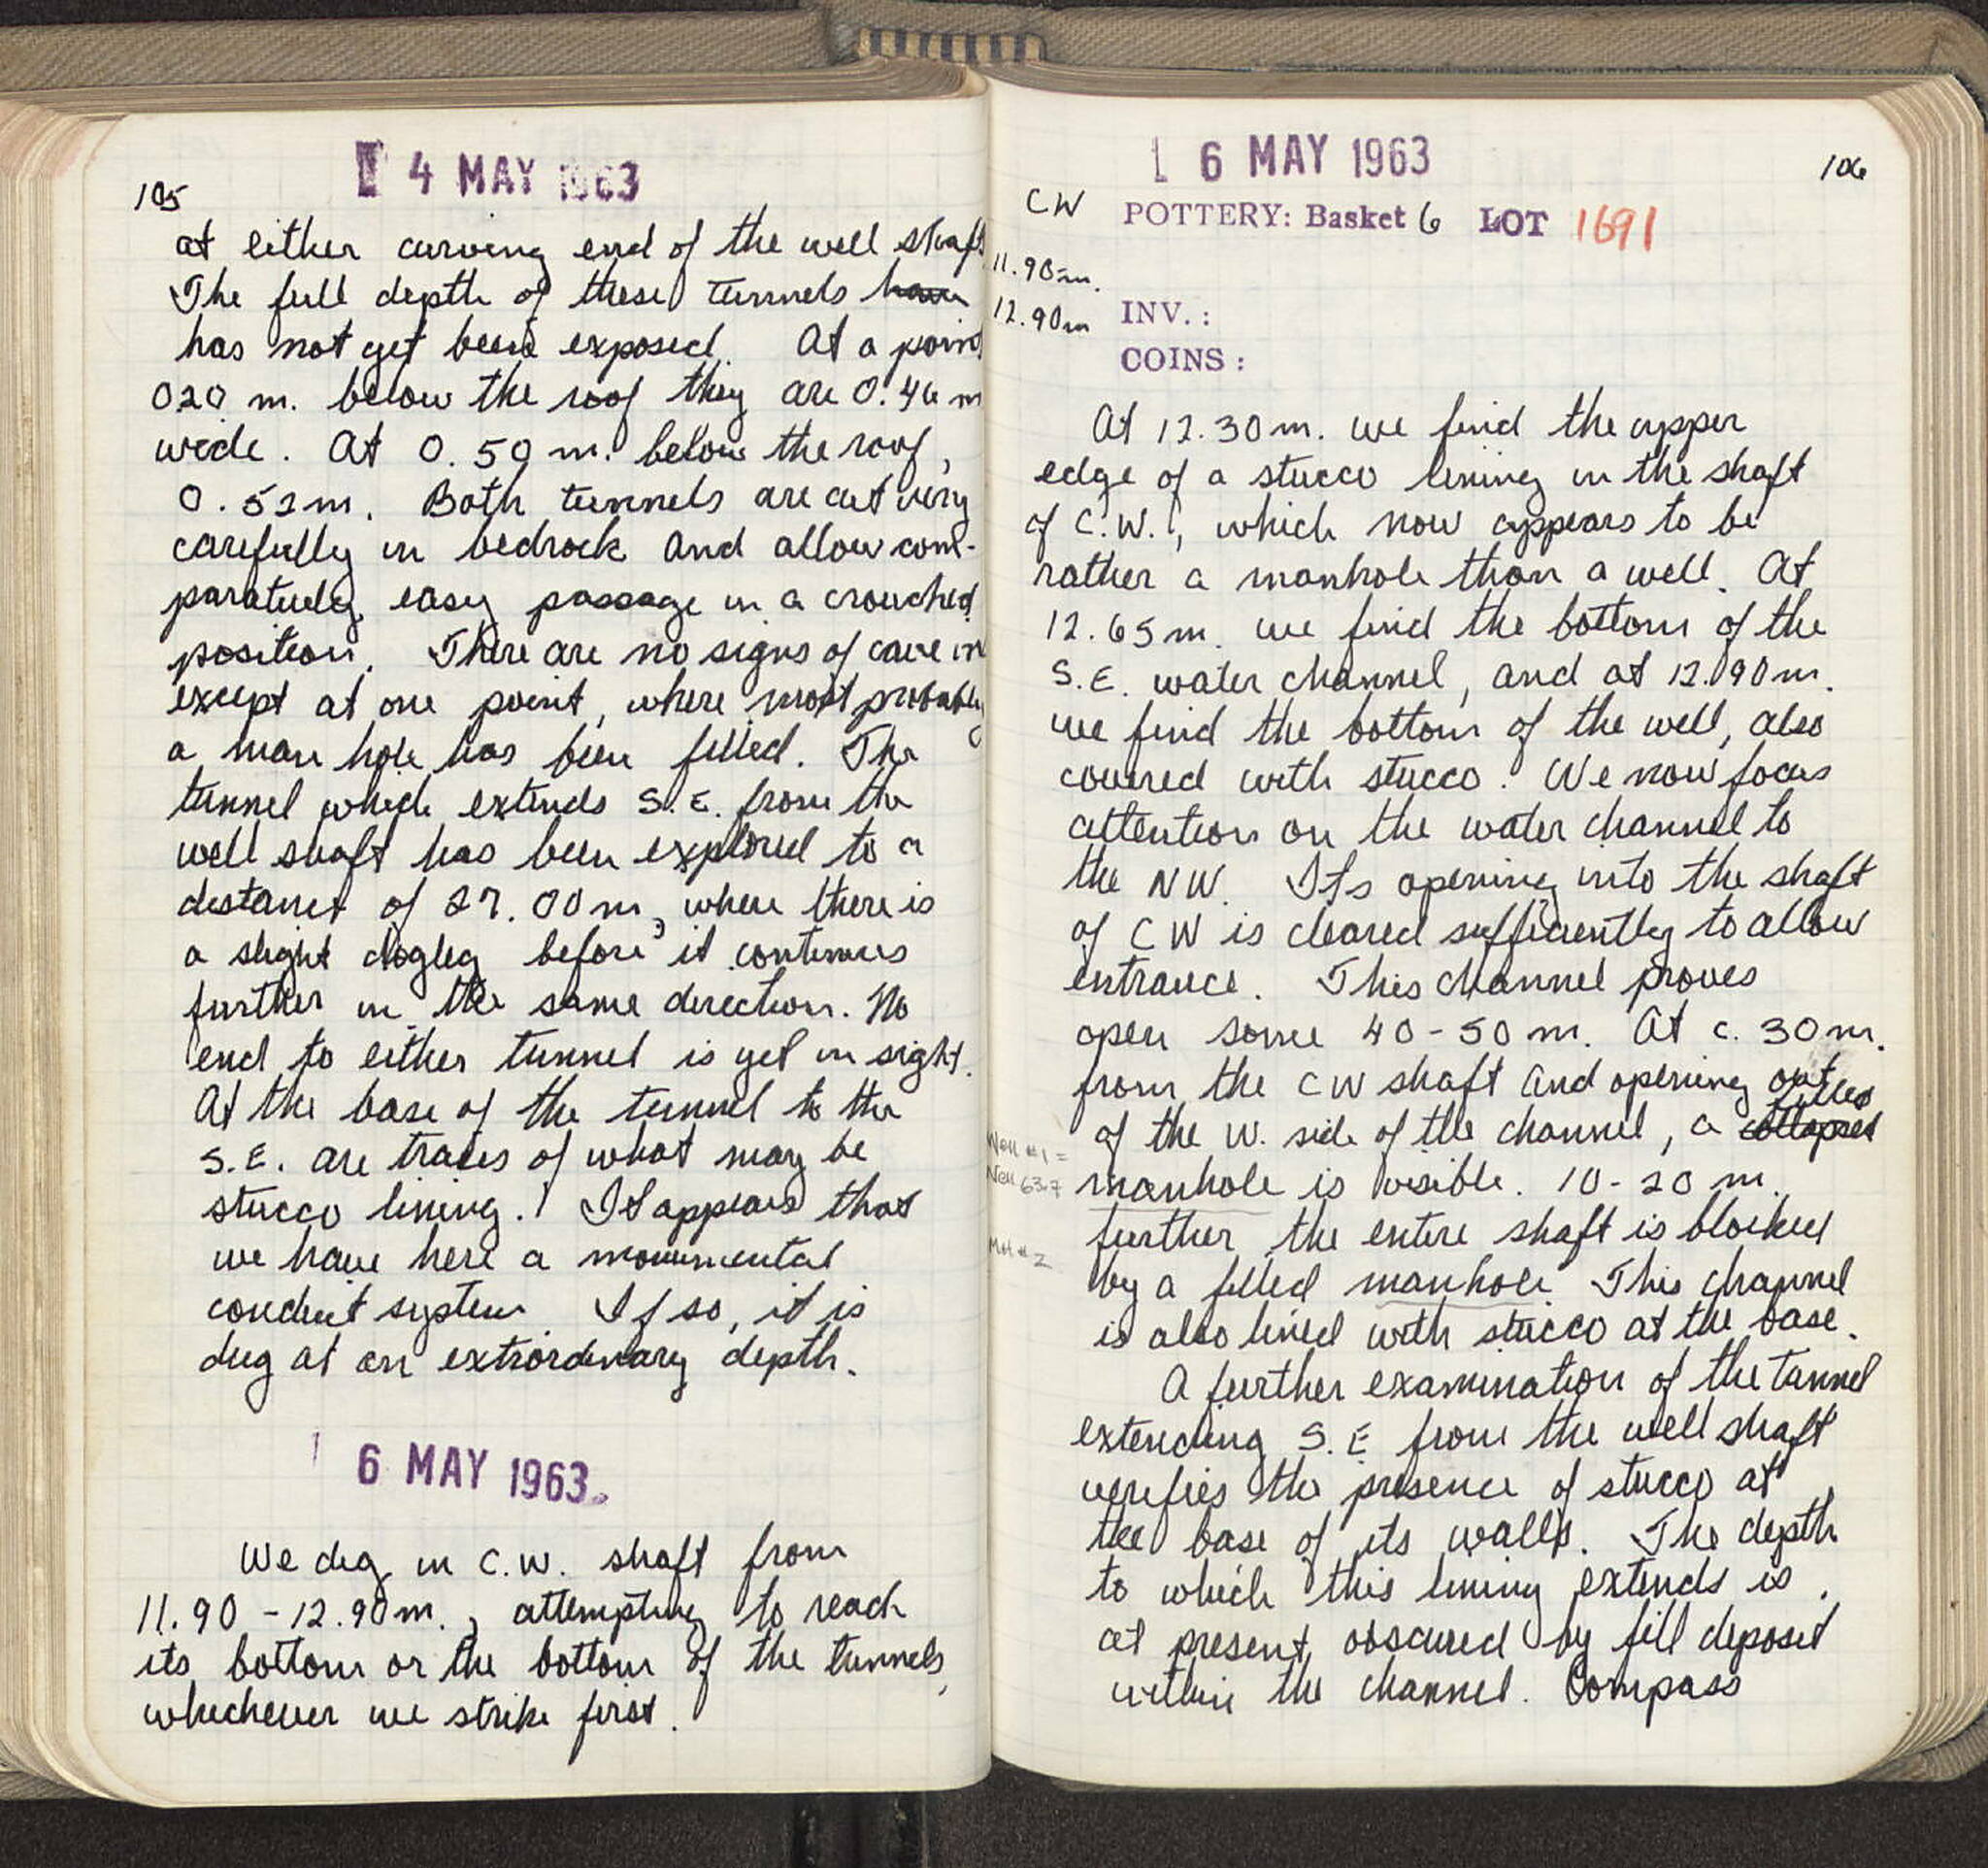 105
4 MAY 1963
at either curving end of the well shaft.
The full depth of these tunnels have
has not yet been exposed. At a point
020 m. below the roof they are 0.46 m
wide. At 0.50 m. below the roof,
0.52m. Both tunnels are cut very
carefully in bedrock and allow com-
paratively easy passage in a crouched
position. There are no signs of cave in
except at one point, where most probably
a man hole has been filled. The
tunnel which extends S.E. from the
well shaft has been explored to a
distance of 27.00m, where there is
a slight dogleg before it continues
further in the same direction. No
end to either tunnel is yet in sight.
At the base of the tunnel to the
S.E. are traces of what may be
stucco lining. It appears that
we have here a monumental
conduit system. If so, it is
dug at an extrordinary depth.
6 MAY 1963
We dig in C.W. shaft from
11.90 - 12.90m., attempting to reach
its bottom or the bottom of the tunnels,
whichever we strike first.
6 MAY 1963
106
CW POTTERY: Basket 6 LOT 1691
11.90m.
12.90m INV.:
COINS:
At 12.30m. we find the upper
edge of a stucco lining in the shaft
of C.W., which now appears to be
rather a manhole than a well. At
12.65m. we find the bottom of the
S.E. water channel, and at 12.90m.
we find the bottom of the well, also
covered with stucco. We now focus
attention on the water channel to
the NW. Its opening into the shaft
of CW is cleared sufficiently to allow
entrance. This channel proves
open some 40-50m. At c. 30m.
from the CW shaft and opening out
of the W. side of the channel, a collapsed filled
Well #1 =
Well 63-7
manhole is visible. 10-20 m.
further the entire shaft is blocked
MH #2
by a filled manhole. This channel
is also lined with stucco at the base.
A further examination of the tunnel
extending S.E from the well shaft
verifies the presence of stucco at
the base of its walls. The depth
to which this lining extends is
at present obscured by fill deposit
within the channel. Compass